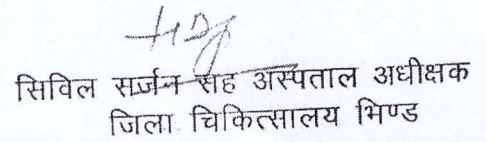 सिविल सर्जन सह अस्पताल अधीक्षक
जिला चिकित्सालय भिण्ड